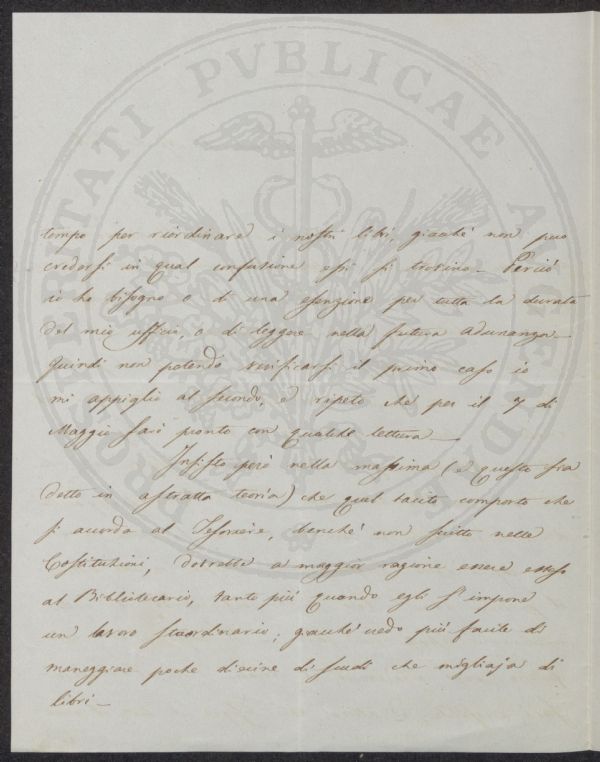 PROSPERITATI PVBLICAE AVGENDAE
tempo per riordinare i nostri libri, giacchè non puo
credersi in qual confusione essi si trovino - Perciò
io ho bisogno o di una esenzione per tutta la durata
del mio ufficio, o di leggere nella futura Adunanza -
Quindi non potendo verificarsi il primo caso io
mi appiglio al secondo, e ripeto che per il 7 di
Maggio sarò pronto con qualche lettura -
Insisto però nella massima (e questo sia
detto in astratta teoria) che quel tacito comporto che
si acorda al Tesoriere, benchè non scritto nelle
Costituzioni, dovrebbe a maggior ragione essere esteso
al Bibliotecario, tanto più quando egli s' impone
un lavoro straordinario; giacchè vedo più facile di
maneggiare poche diecine di scudi che migliaja di
libri -